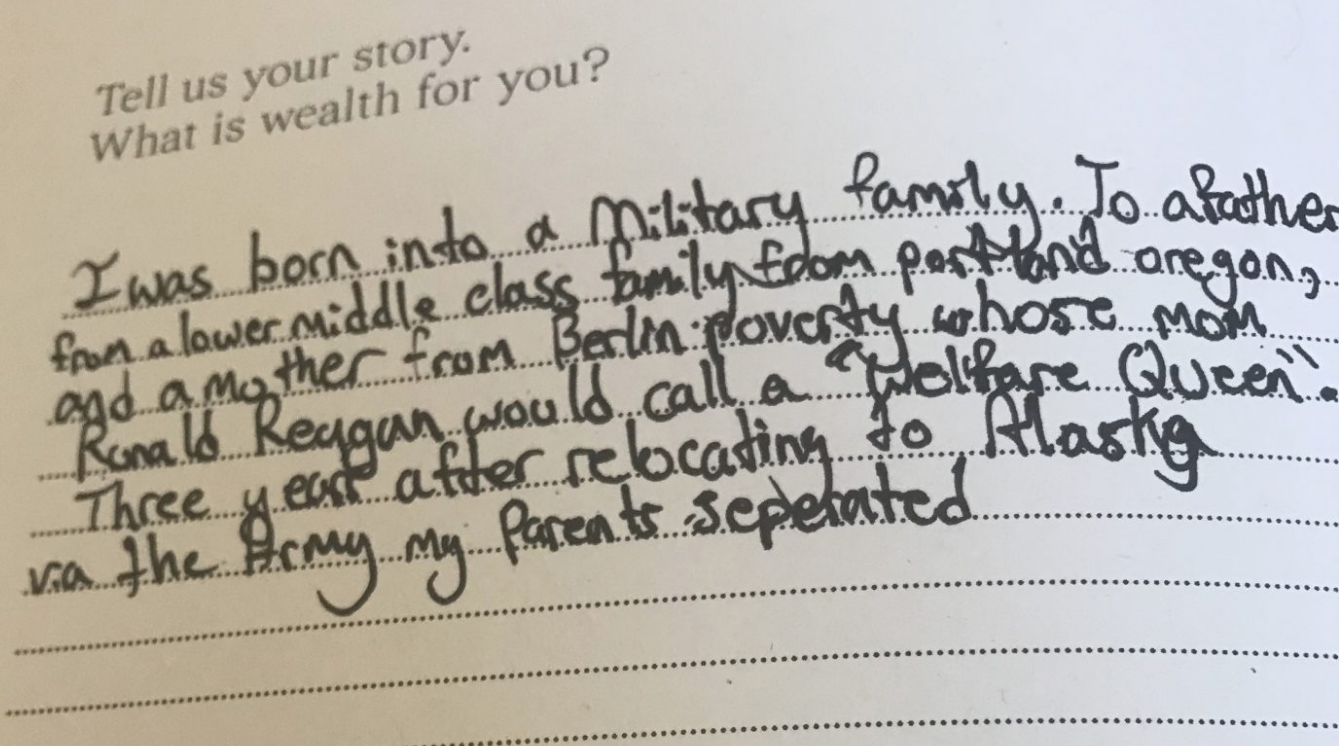 Tell us your story.
What is wealth for you?
I was born into a Military family. To a father
from a lower middle class family from portland oregon,
and a mother from Berlin poverty whose mom
Ronald Reagan would call a "Welfare Queen".
Three years after relocating to Alaska
via the Army my Parents seperated